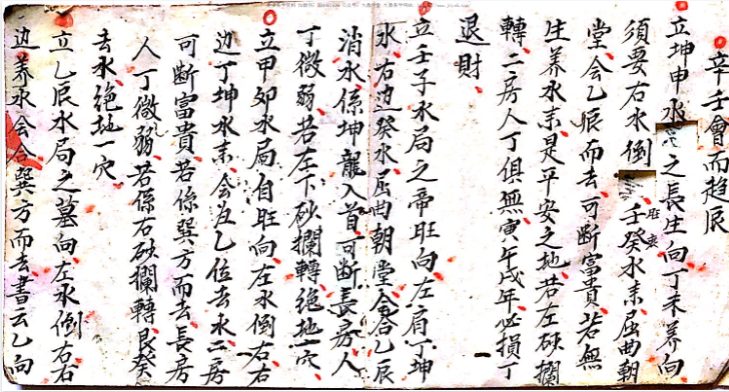 辛壬會而趋辰
立坤申水之長生向丁未养向
須要右水倒壬癸水来屈曲朝
堂会乙辰而去可断富貴若無
生养水来是平安之地若左砂攔
轉二房人丁俱無寅午戌年必損丁
退財
立壬子水局之帝旺向左肩丁坤
水右边癸水屈曲朝堂会合乙辰
消水係坤龍入首可断長房人
丁微弱若左下砂攔轉绝地一穴
立甲卯水局自旺向左水倒右右
边丁坤水来会在乙位去水二房
可断富貴若係巽方而去長房
人丁微弱若係右砂攔轉艮癸
去水绝地一穴
立乙辰水局之墓向左水倒右右
边养水会合巽方而去書云乙向